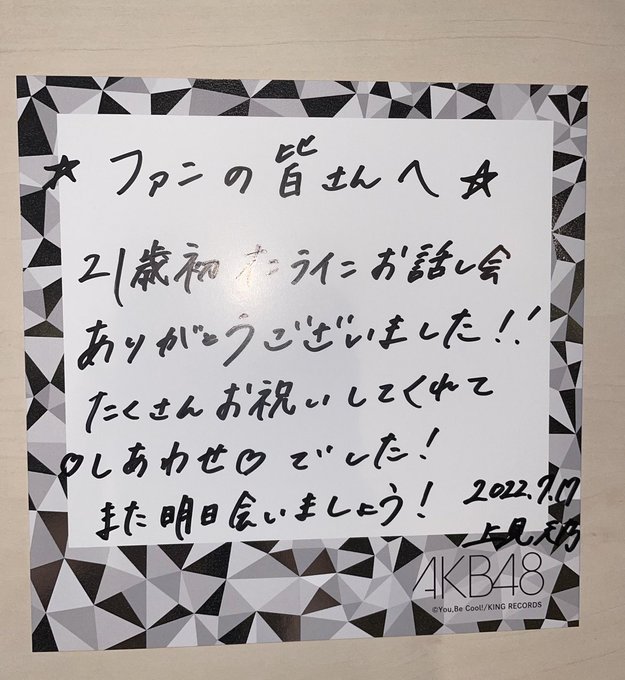 ☆ ファンの皆さんへ ☆
21歳初 オンラインお話し会
ありがとうございました!!
たくさんお祝いしてくれて
♡しあわせ♡でした!
また明日会いましょう!
2022.7.17
上見天乃
AKB48
©You,Be Cool!/KING RECORDS